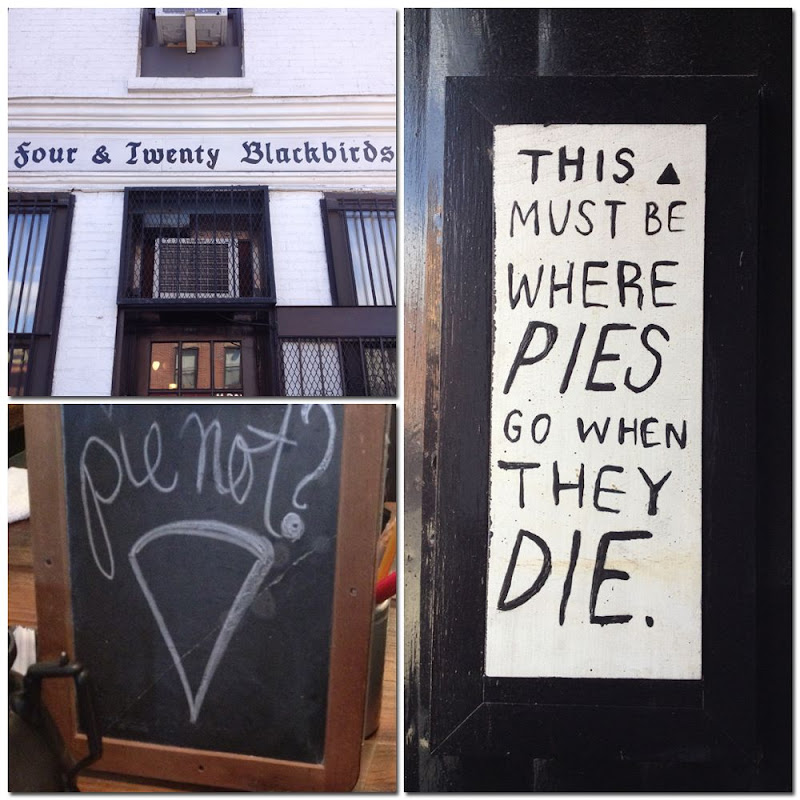 Four & Twenty Blackbirds
pie not?
THIS
MUST BE
WHERE
PIES
GO WHEN
THEY
DIE.